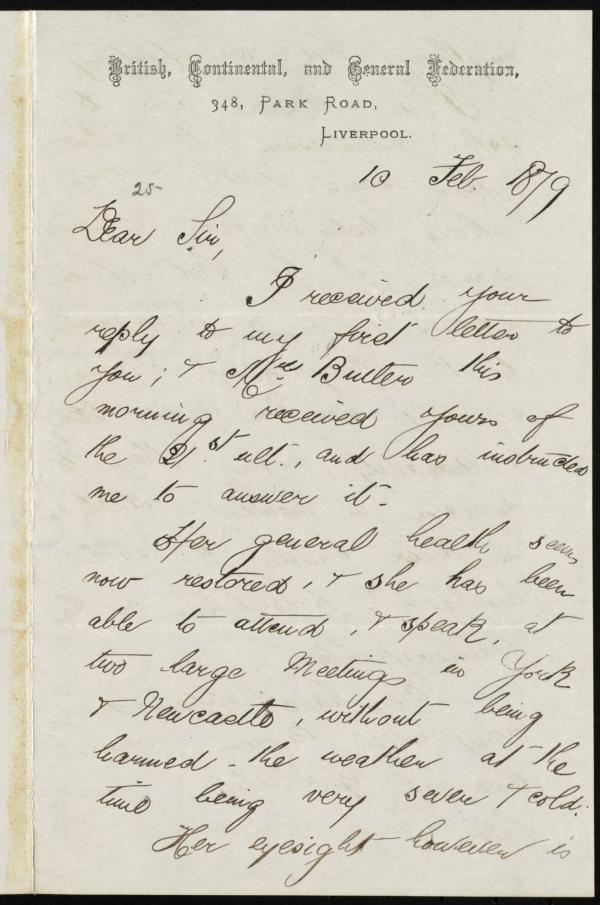 British, Continental, and General Federation,
348, Park Road,
Liverpool.
10 Feb. 1879
25
Dear Sir,
I received your
reply to my first letter to
you; & Mrs Butler this
morning received yours of
the 21st ult., and has instructed
me to answer it.
Her general health seems
now restored, & she has been
able to attend, & speak, at
two large Meetings in York
& Newcastle, without being
harmed - the weather at the
time being very sever & cold.
Her eyesight however is